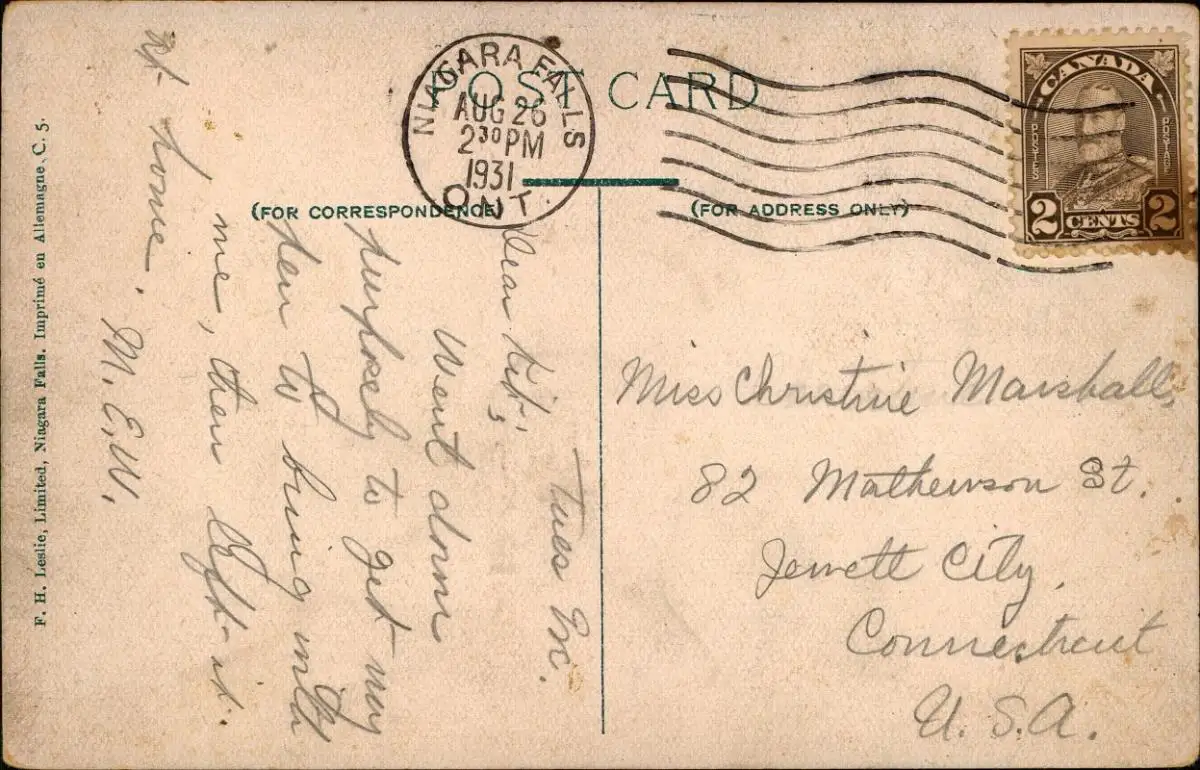 POST CARD
NIAGARA FALLS
AUG 26
2 30 PM
1931
ONT.
CANADA
POSTES
POSTAGE
2 CENTS 2
(FOR CORRESPONDENCE)
(FOR ADDRESS ONLY)
Tues
Dear Kit,
Went down
purposely to get my
pen to bring with
me, then left it
at home.
M. E. W.
Miss Christine Marshall,
82 Mathewson St.
Jewett City,
Connecticut
U. S. A.
F. H. Leslie, Limited, Niagara Falls. Imprimé en Allemagne. C. 5.